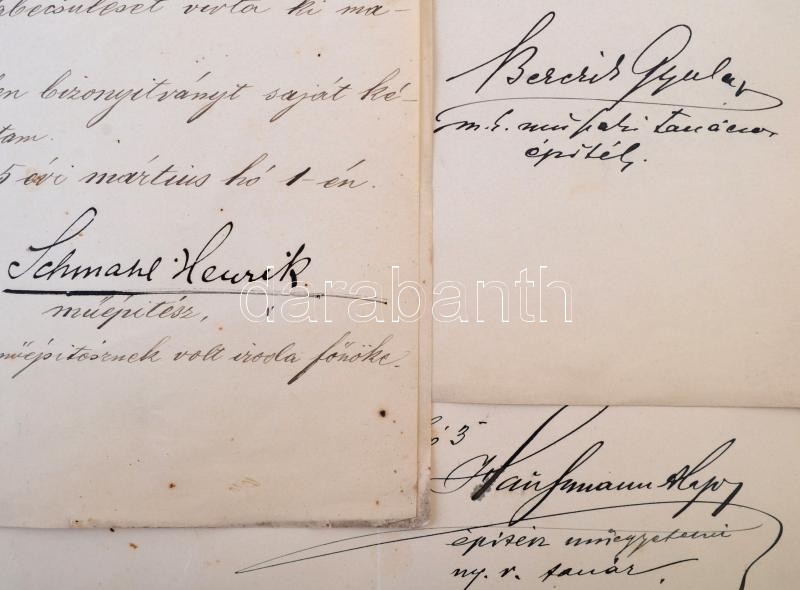 becsülését vívta ki ma-
bizonyítványt saját ké-
tam.
5 évi március hó 1-én.
Schmahl Henrik
műépítész,
műépítésznek volt iroda főnöke.
Berczik Gyula
m. k. műszaki tanácsos
építész
ó 3
Hauszmann Alajos
építész műegyetemi
ny. r. tanár.
darabanth